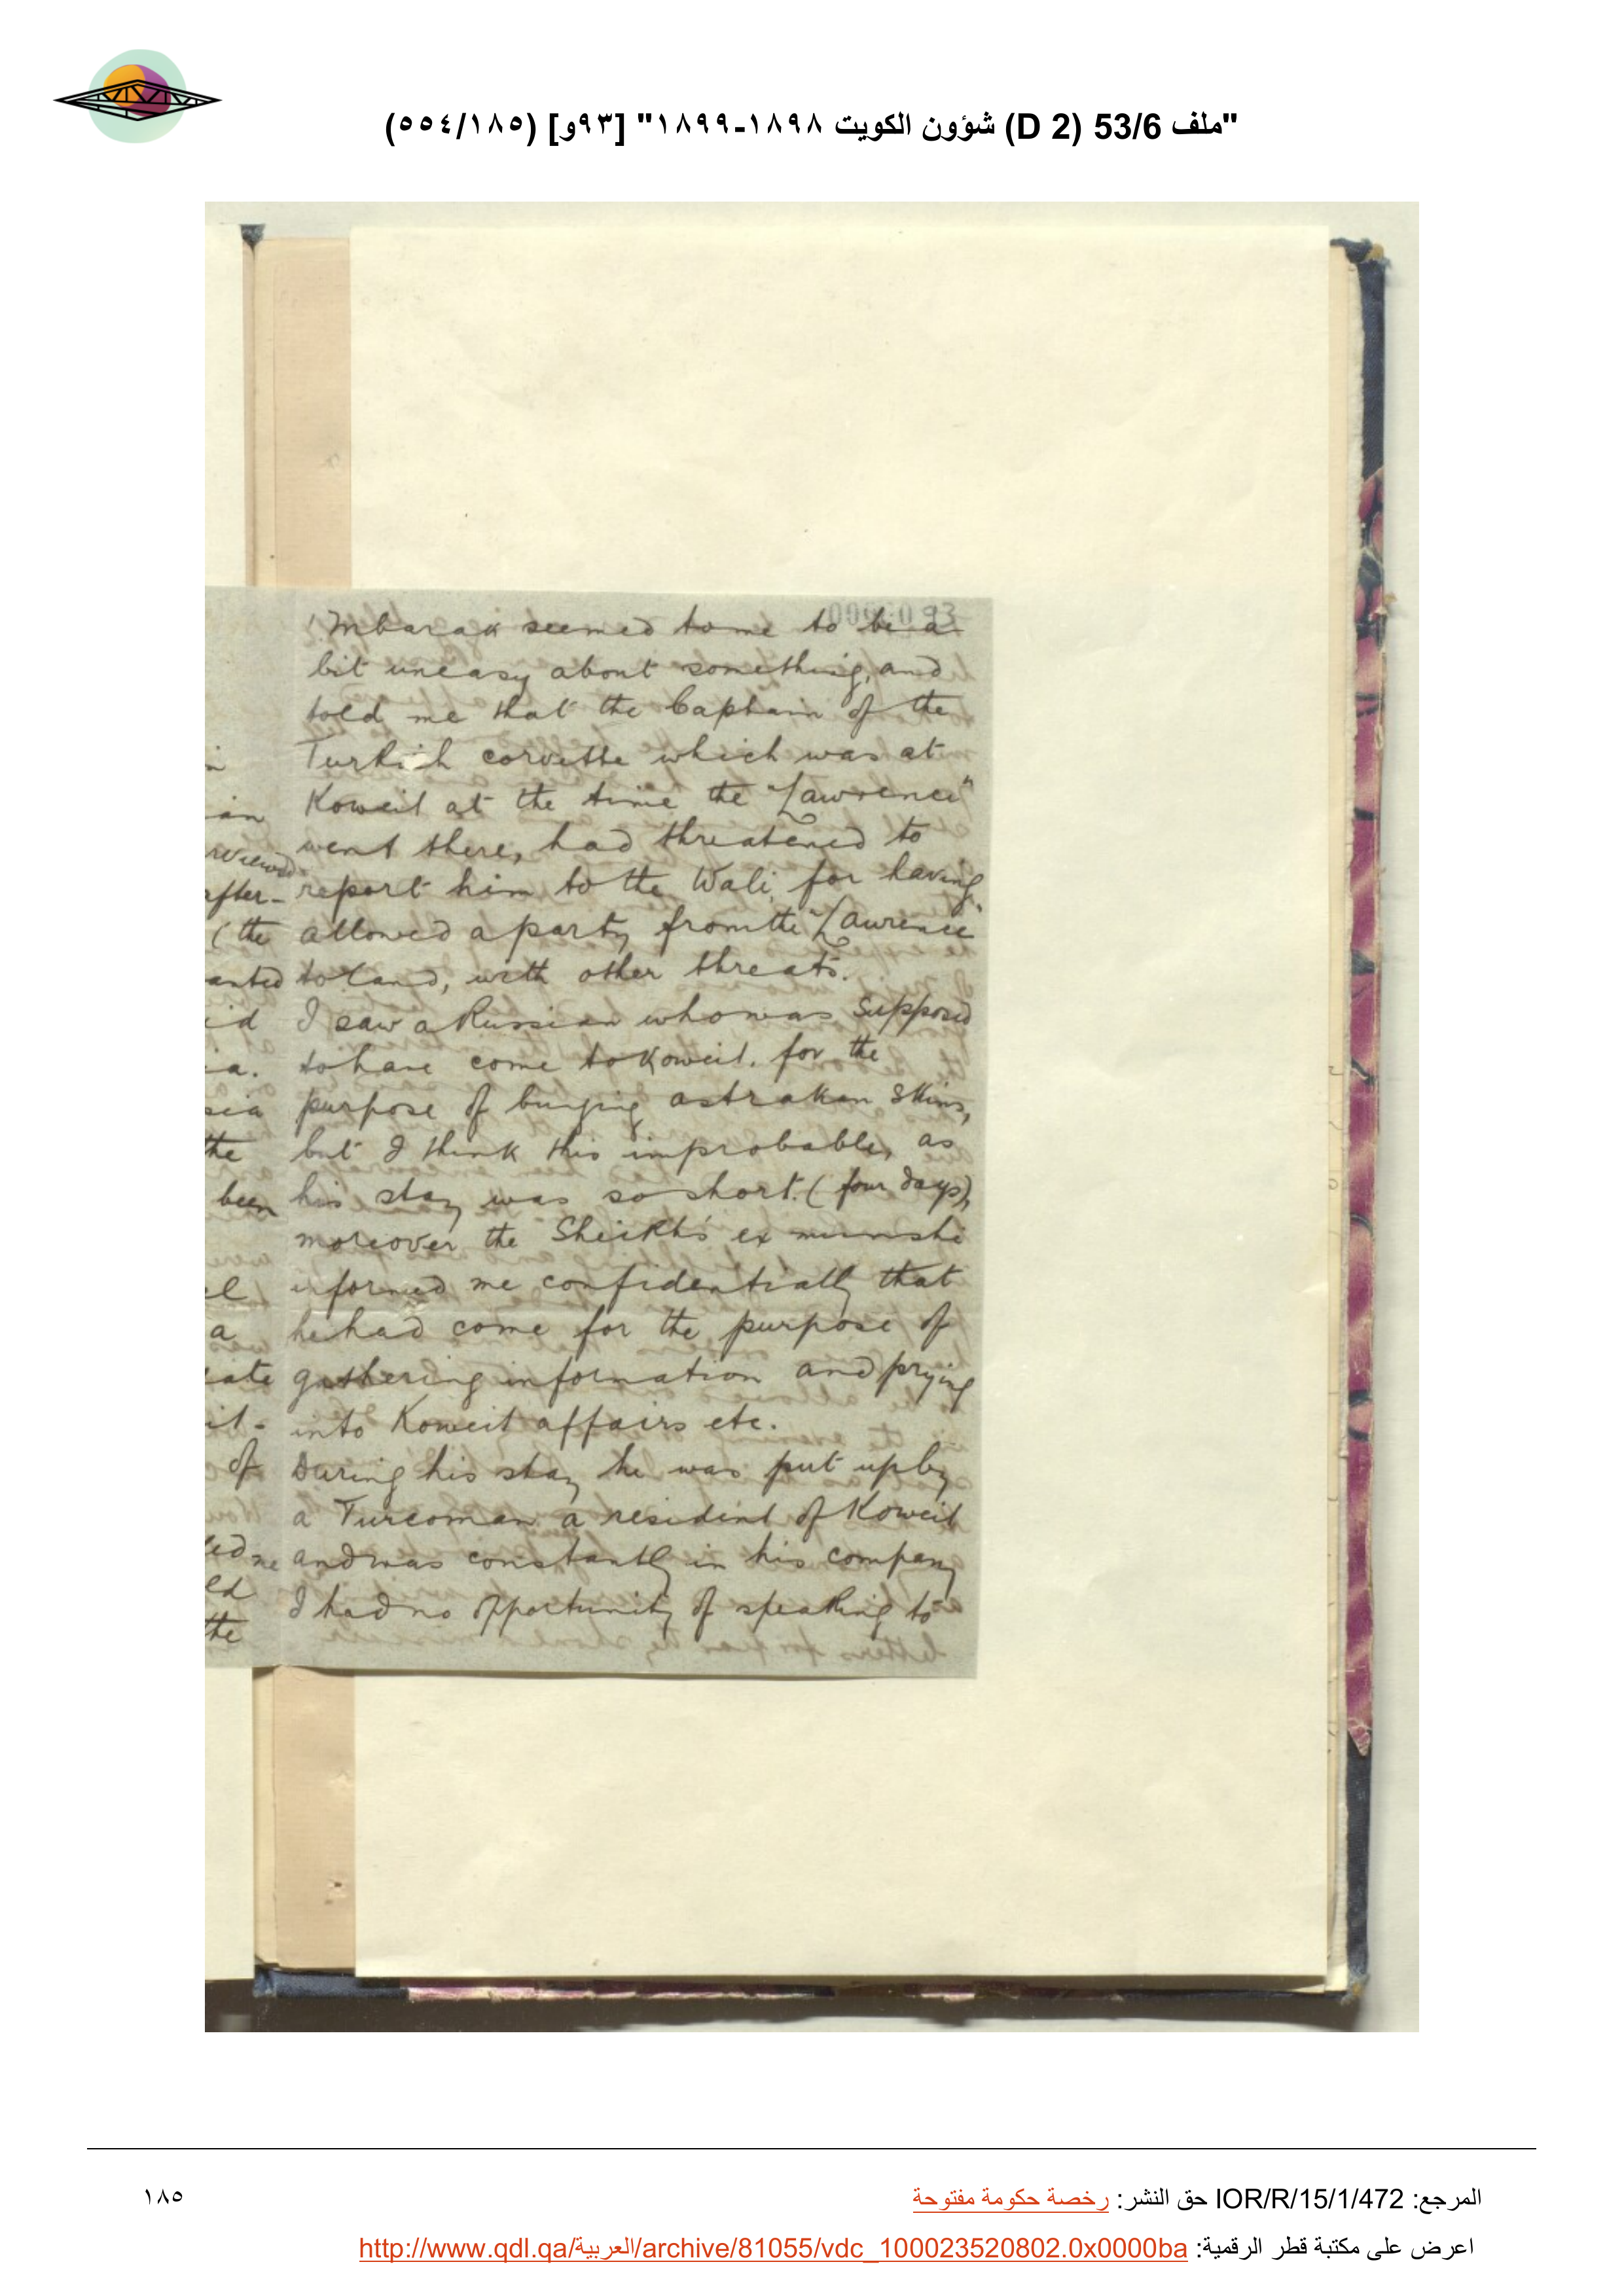 "ملف 53/6 (D 2) شؤون الكويت ١٨٩٨-١٨٩٩" [٩٣و] (١٨٥/٥٥٤)
Mbarak seemed to me to be a
bit uneasy about something, and
told me that the Captain of the
Turkish corvette which was at
Koweit at the time the "Lawrence"
went there, had threatened to
report him to the Wali, for having
allowed a party from the "Lawrence"
to land, with other threats.
I saw a Russian who was supposed
to have come to Koweit. for the
purpose of buying astrakan skins,
but I think this improbable, as
his stay was so short. (four days),
moreover the Sheikh's ex munshi
informed me confidentially that
he had come for the purpose of
gathering information and prying
into Koweit affairs etc.
During his stay he was put up by
a Turcoman a resident of Koweit
and was constantly in his company
I had no opportunity of speaking to
after-
(the
the
been
a
of
the
المرجع: IOR/R/15/1/472 حق النشر: رخصة حكومة مفتوحة
١٨٥
اعرض على مكتبة قطر الرقمية: http://www.qdl.qa/العربية/archive/81055/vdc_100023520802.0x0000ba